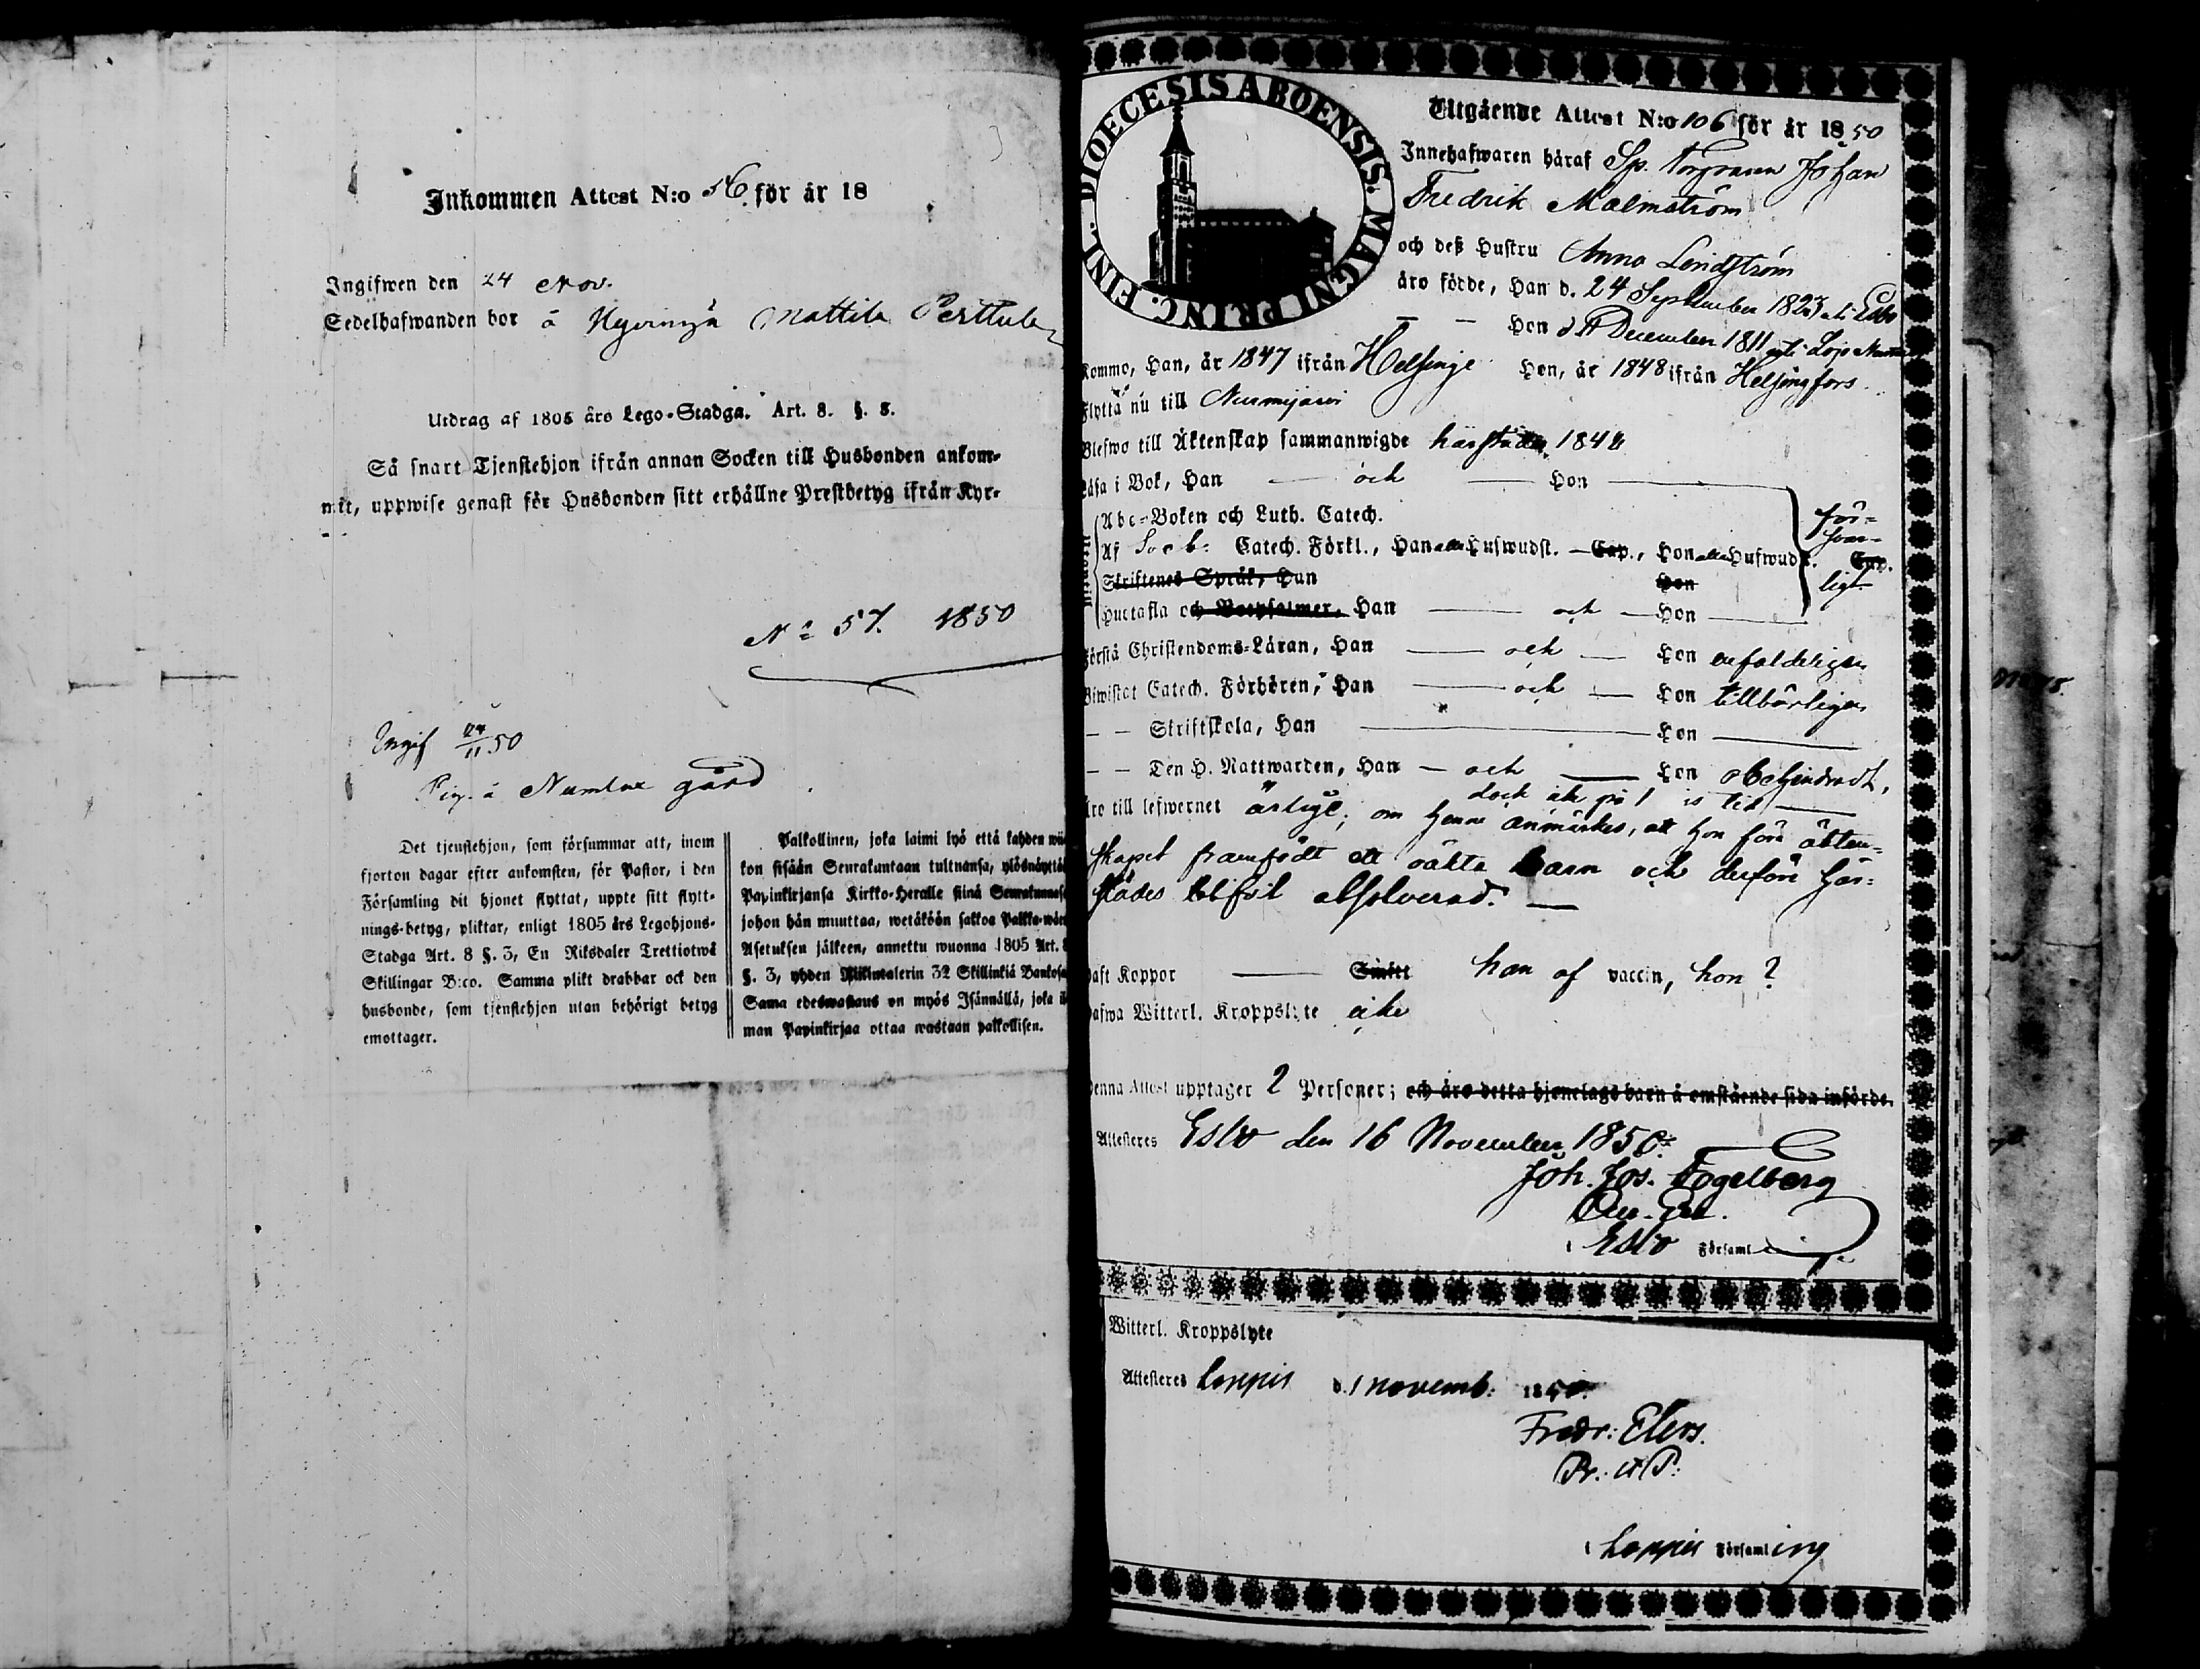 Inkommen Attest N:o 56 för år 18
Ingifwen den 24 Nov.
Sedelhafwanden bor å Mattila Perttula
Utdrag af 1805 års Lego-Stadga. Art. 8. §. 3.
Så snart Tjenstehjon ifrån annan Socken till Husbonden ankom-
mit, uppwise genast för Husbonden sitt erhållne Prestbetyg ifrån Kyr-
No 57. 1850
Ingif 24/11 50
Pig. å Numlax gård
Det tjenstehjon, som försummar att, inom
fjorton dagar efter ankomsten, för Pastor, i den
Församling dit hjonet flyttat, uppte sitt flytt-
nings-betyg, pliktar, enligt 1805 års Legohjons-
Stadga Art. 8 §. 3, En Riksdaler Trettiotwå
Skillingar B:co. Samma plikt drabbar ock den
husbonde, som tjenstehjon utan behörigt betyg
emottager.
Palkollinen, joka laimi lyö että kahden wii
kon sisään Seurakuntaan tultuansa, ylösnäyttä
Papinkirjansa Kirkko-Herralle siinä Seurakunnas
johon hän muuttaa, wetäköön sakkoa Palkka-wäen
Asetuksen jälkeen, annettu wuonna 1805 Art. 8
§. 3, yhden Riksdalerin 32 Skillinkiä Bankosa
Sama edeswastaus on myös Isännällä, joka il
man Papinkirjaa ottaa wastaan palkollisen.
DIOECESIS ABOENSIS. MAGNI PRINC. FINL.
Utgående Attest N:o 106 för år 1850
Innehafwaren häraf Sp. Torparen Johan
Fredrik Malmström
och deß Hustru Anna Lindström
äro födde, Han d. 24 September 1823 uti Esbo
— — Hon d. December 1811 uti Lojo
Kommo, Han, år 1847 ifrån Helsinge Hon, år 1848 ifrån Helsingfors.
Flytta nu till Nurmijärvi
Blefwo till Äktenskap sammanwigde härstädes 1848
Läsa i Bok, Han — och — Hon —
Abc-Boken och Luth. Catech.
Af Sveb: Catech. Förkl., Han alla Hufwudst. — Cap., Hon alla Hufwudst. Cap.
Skriftenes Språk, Han Hon
Hustafla och Botpsalmer, Han — och — Hon —
för-
svar-
ligt.
Förstå Christendoms-Läran, Han — och — Hon enfaldeligen
Biwistat Catech. Förhören, Han — och — Hon tillbörligen
— — Skriftskola, Han — Hon —
— — Den H. Nattwarden, Han — och — Hon obehindradt,
dock ick på 1 ½ tid —
Äro till lefwernet ärlige; om henne anmärkes, att hon före äkten-
skapet framfödt ett oäkta barn och derföre här-
städes absolverad. —
Haft Koppor — Smitt han af vaccin, hon?
Hafwa Witterl. Kroppslyte icke
Denna Attest upptager 2 Personer; och äro detta hjonelags barn å omstående sida införde.
Attesteres Esbo den 16 November 1850.
Joh. Jos. Fogelberg
i Esbo Församl
Witterl. Kroppslyte
Attesteres Loppis d. 1 novemb: 1850.
Fredr: Elers.
Pr: V P:
i Loppis Församling